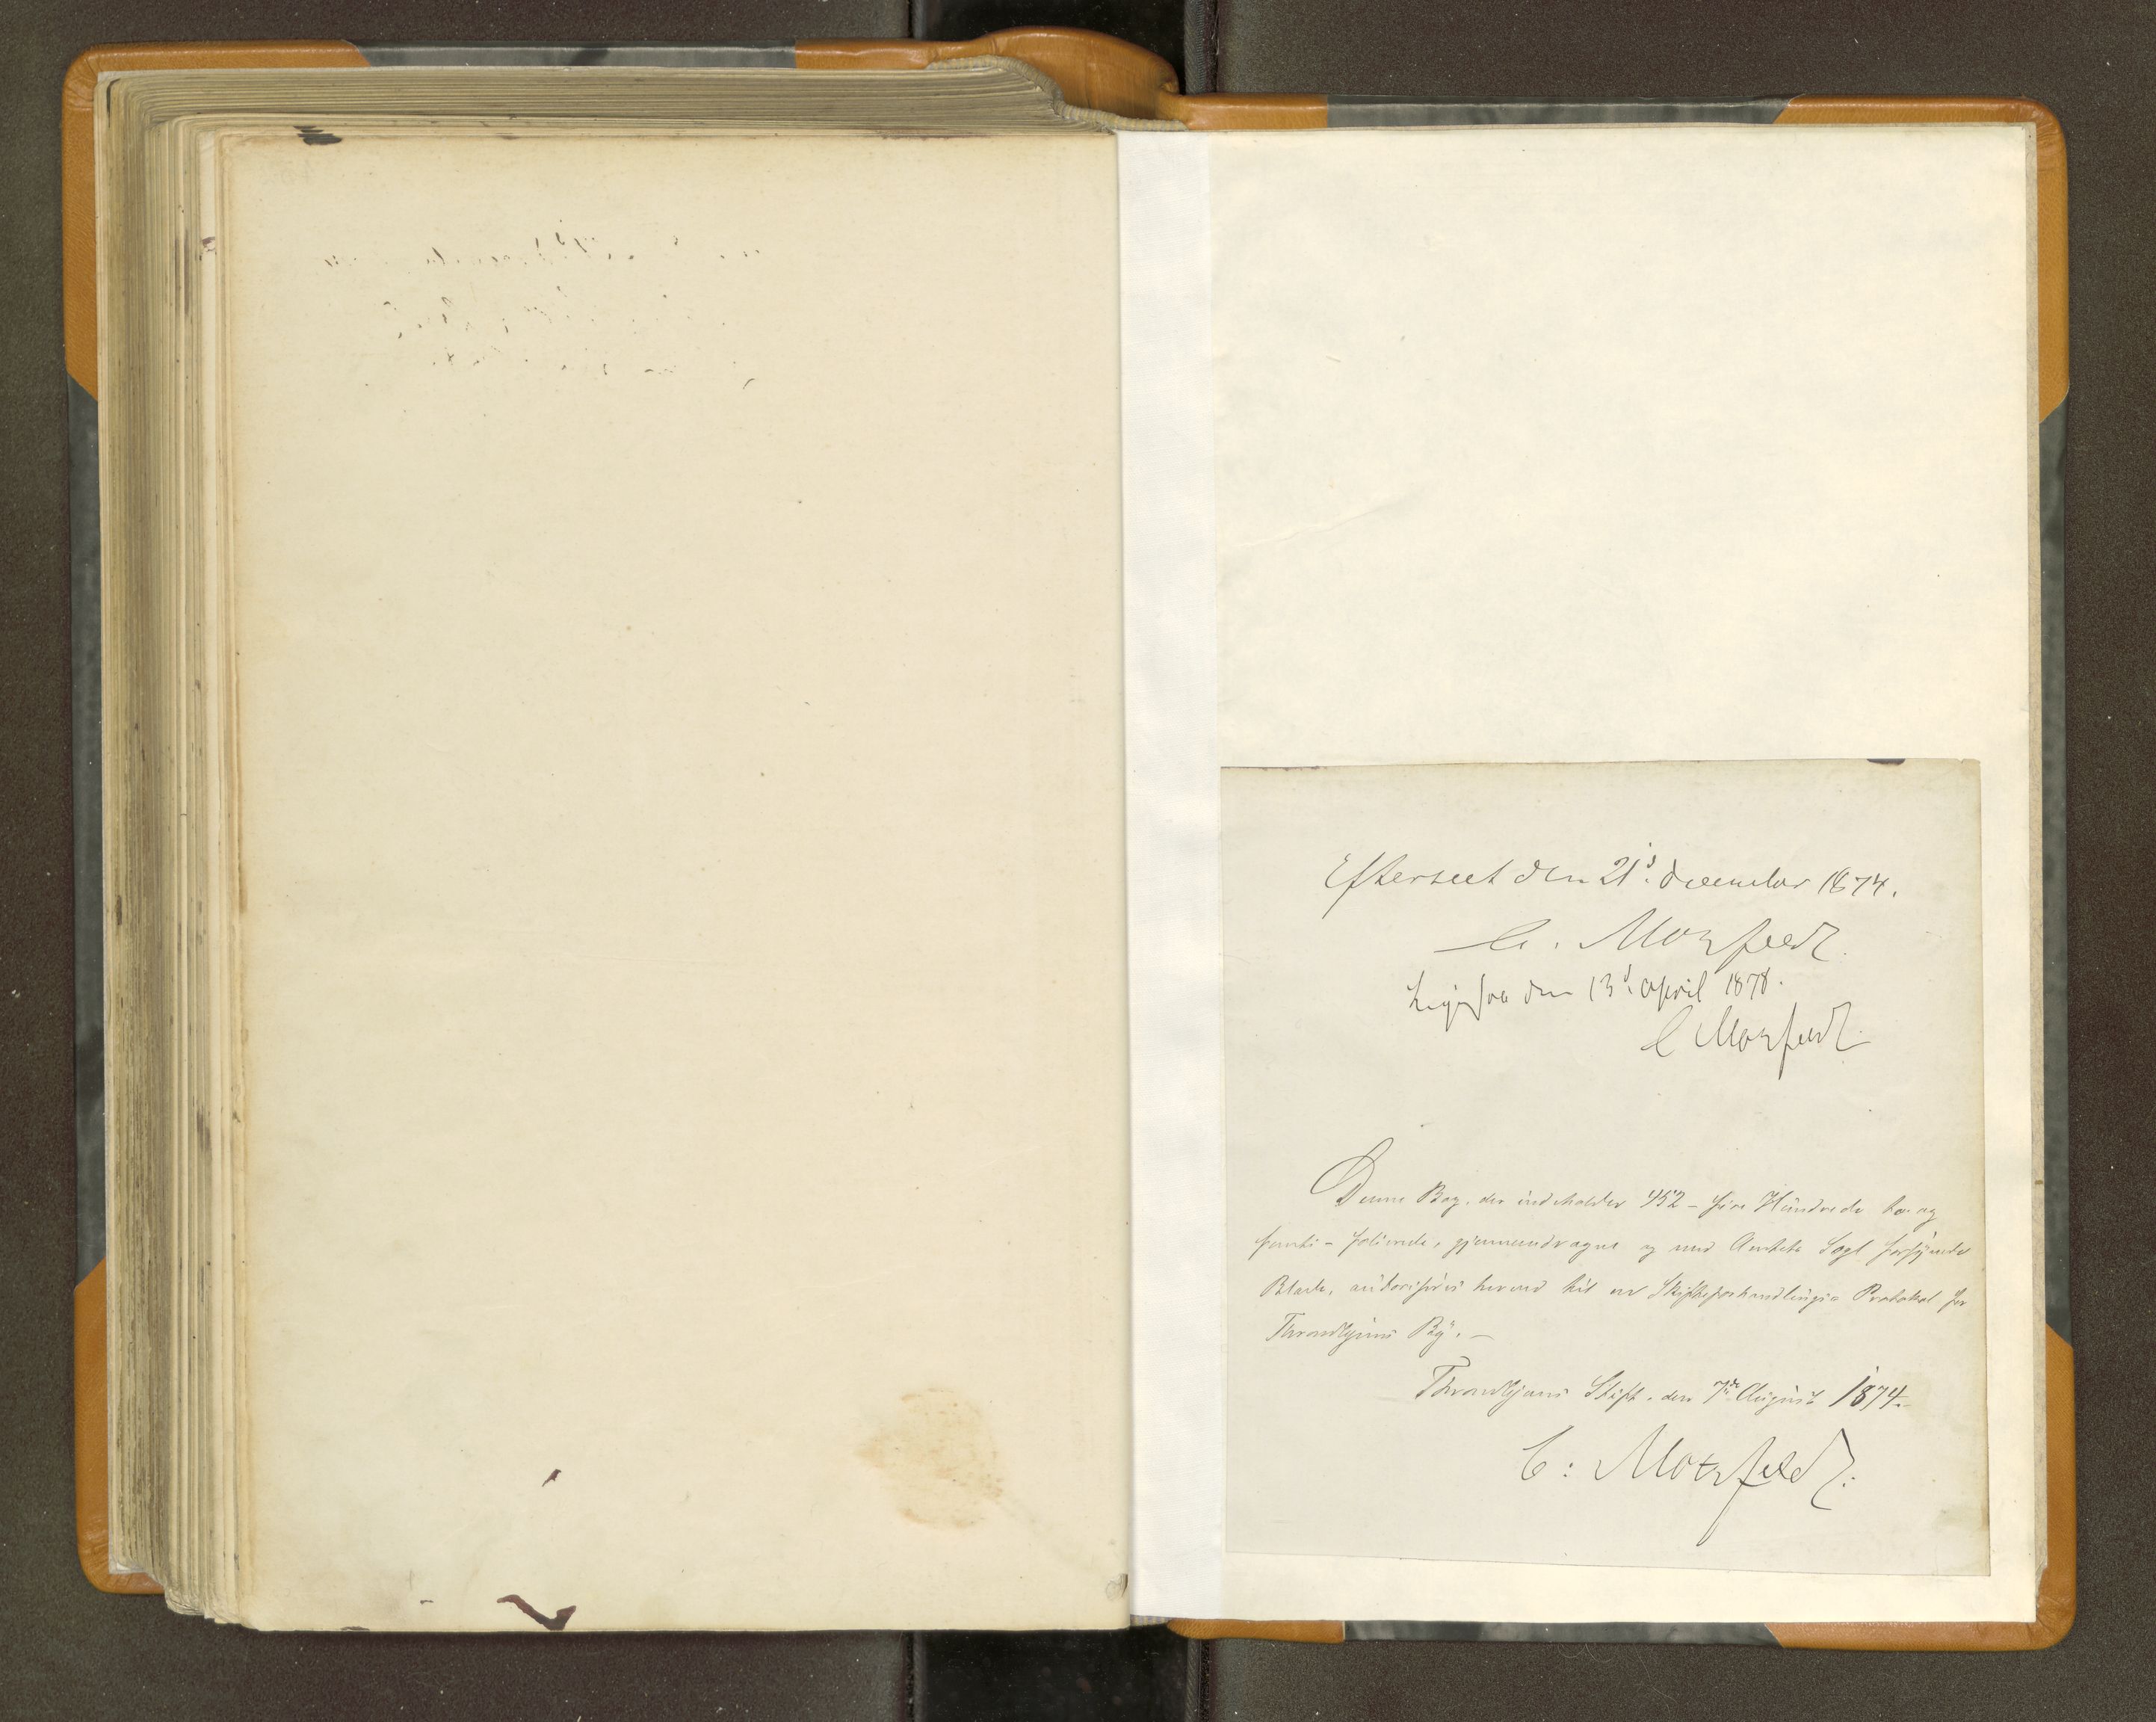 Efterseet den 21d. december 1874.
C. Motzfeldt.
Ligesaa den 13d. april 1878.
C Motzfeldt
Denne Bog, der indeholder 452 - fire Hundrede to og
femti - folierede, gjennemdragne og med Amtets Segl forsÿnede
Blade, autoriseres herved til en Skifteforhandlings- Protokol for
Throndhjems Bÿ. -
Throndhjems Stift, den 7de August 1874.-
C: Motzfeldt: